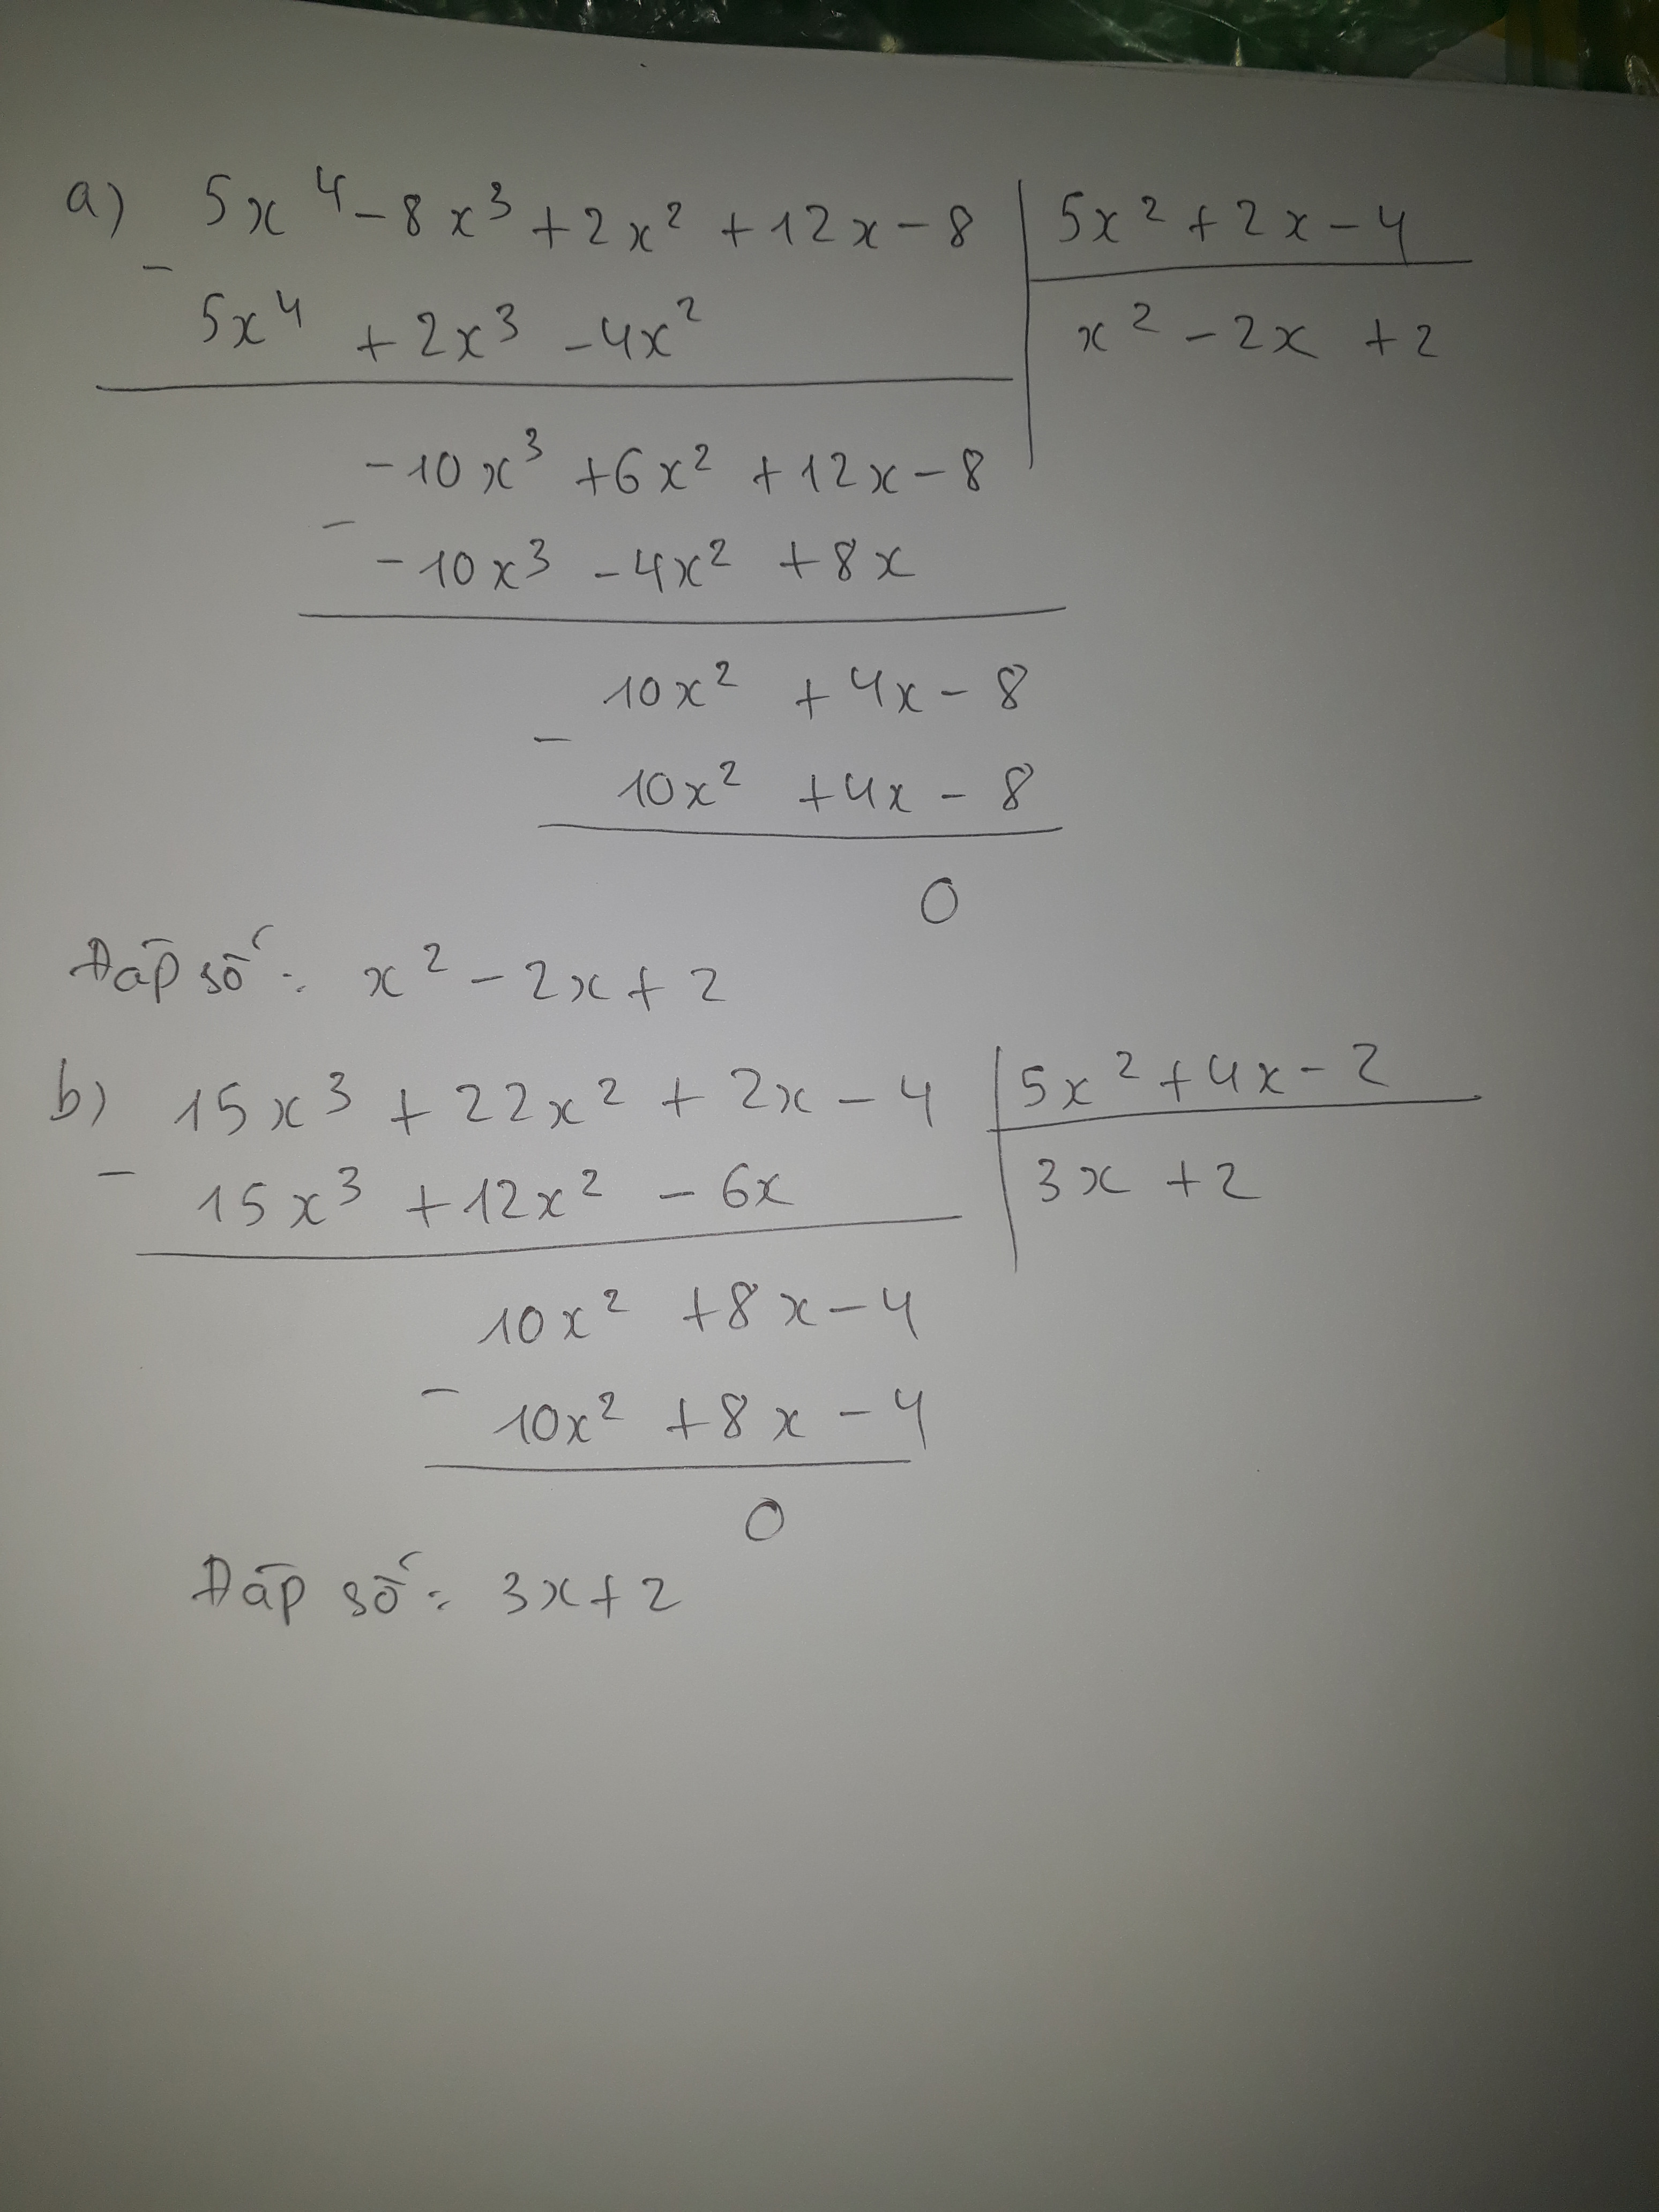 a) 5x⁴ - 8x³ + 2x² + 12x - 8 | 5x² + 2x - 4
- 5x⁴ + 2x³ - 4x² | x² - 2x + 2
-10x³ + 6x² + 12x - 8
- -10x³ - 4x² + 8x
10x² + 4x - 8
- 10x² + 4x - 8
0
Đáp số: x² - 2x + 2
b) 15x³ + 22x² + 2x - 4 | 5x² + 4x - 2
- 15x³ + 12x² - 6x | 3x + 2
10x² + 8x - 4
- 10x² + 8x - 4
0
Đáp số: 3x + 2